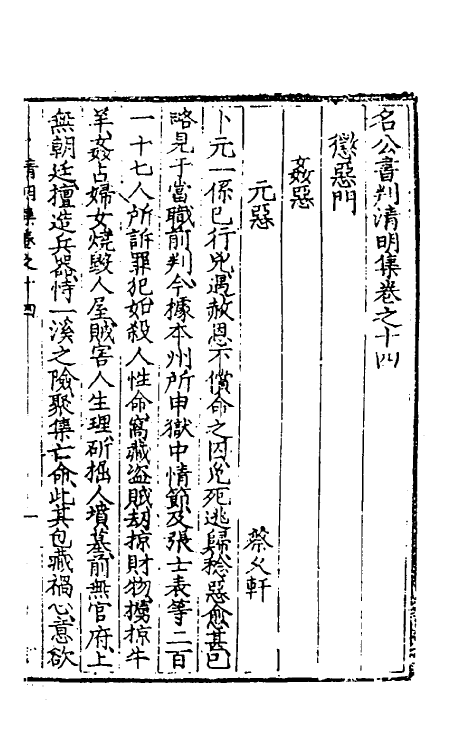 名公書判清明集卷之十四
懲惡門
姦惡
元惡
蔡久軒
卜元一係已行兇遇赦恩不償命之囚免死逃歸稔惡愈甚已
略見于當職前判今據本州所申獄中情節及張士表等二百
一十七人所訴罪犯如殺人性命窩藏盜賊劫掠財物擄掠牛
羊姦占婦女燒毀人屋賊害人生理斫掘人墳墓前無官府上
無朝廷擅造兵器恃一溪之險聚集亡命此其包藏禍心意欲
清明集卷之十四
一